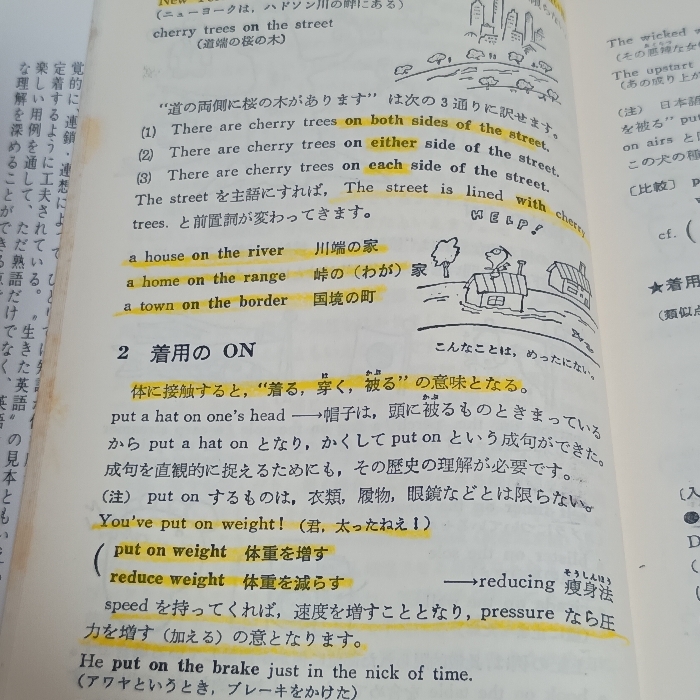 New
(ニューヨークは，ハドソン川の畔にある)
cherry trees on the street
(道端の桜の木)
“道の両側に桜の木があります” は次の 3 通りに訳せます。
(1) There are cherry trees on both sides of the street.
(2) There are cherry trees on either side of the street.
(3) There are cherry trees on each side of the street.
The street を主語にすれば， The street is lined with cherry
trees. と前置詞が変わってきます。
HELP!
a house on the river 川端の家
a home on the range 峠の（わが）家
a town on the border 国境の町
こんなことは，めったにない。
2 着用の ON
体に接触すると，“着る，穿く，被る” の意味となる。
put a hat on one's head ──→帽子は，頭に被るものときまっている
から put a hat on となり，かくして put on という成句ができた。
成句を直観的に捉えるためにも，その歴史の理解が必要です。
(注) put on するものは，衣類，履物，眼鏡などとは限らない。
You've put on weight! (君，太ったねえ！)
put on weight 体重を増す
reduce weight 体重を減らす ──→reducing 痩身法
speed を持ってくれば，速度を増すこととなり，pressure なら圧
力を増す（加える）の意となります。
He put on the brake just in the nick of time.
(アワヤというとき，ブレーキをかけた)
覚的に，連鎖・連想によって，
定着するように工夫されている。
楽しい用例を通して，ただ熟語だけでなく，英語
な理解を深めることができる
“生きた英語”の見本とも
The wicked
The upstart
(注) 日本語
を被る” put
on airs と
この犬の種
〔比較〕
cf.
★着用
(類似点